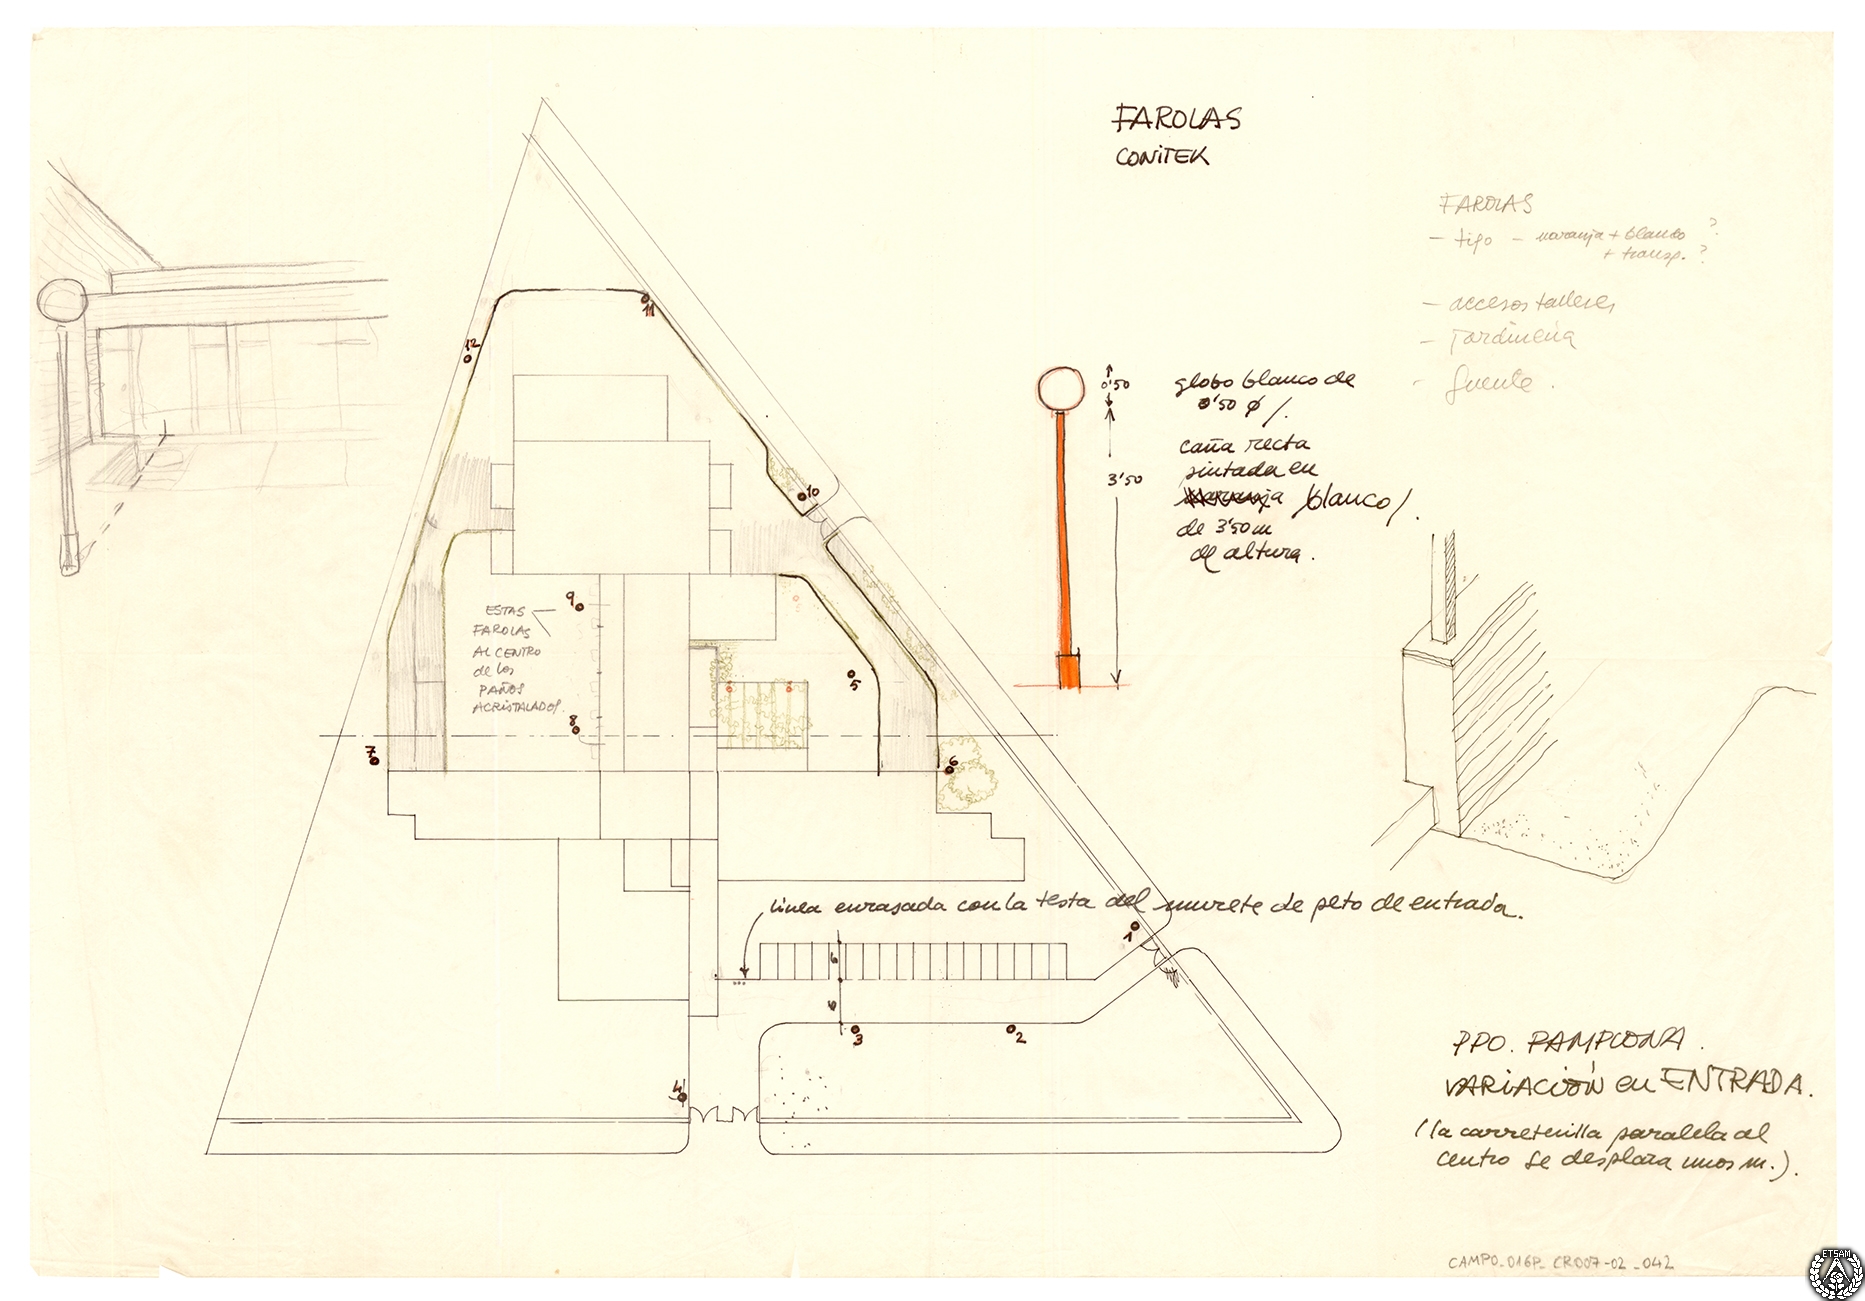 FAROLAS
CONITEK
FAROLAS
- tipo - naranja + blanco ?
+ transp. ?
- accesos talleres
- jardinería
- fuente.
0'50
3'50
globo blanco de
0'50 ø/.
caña recta
pintada en
naranja blanco/.
de 3'50 m
de altura.
12
11
10
9
ESTAS
FAROLAS
AL CENTRO
de los
PAÑOS
ACRISTALADOS.
8
7
5
6
línea enrasada con la testa del murete de peto de entrada.
1
5
6
3
2
4
PPO. PAMPLONA.
VARIACIÓN en ENTRADA.
(la carreterilla paralela al
centro se desplaza unos m.).
CAMPO_016P_CR007-02_042
ETSAM